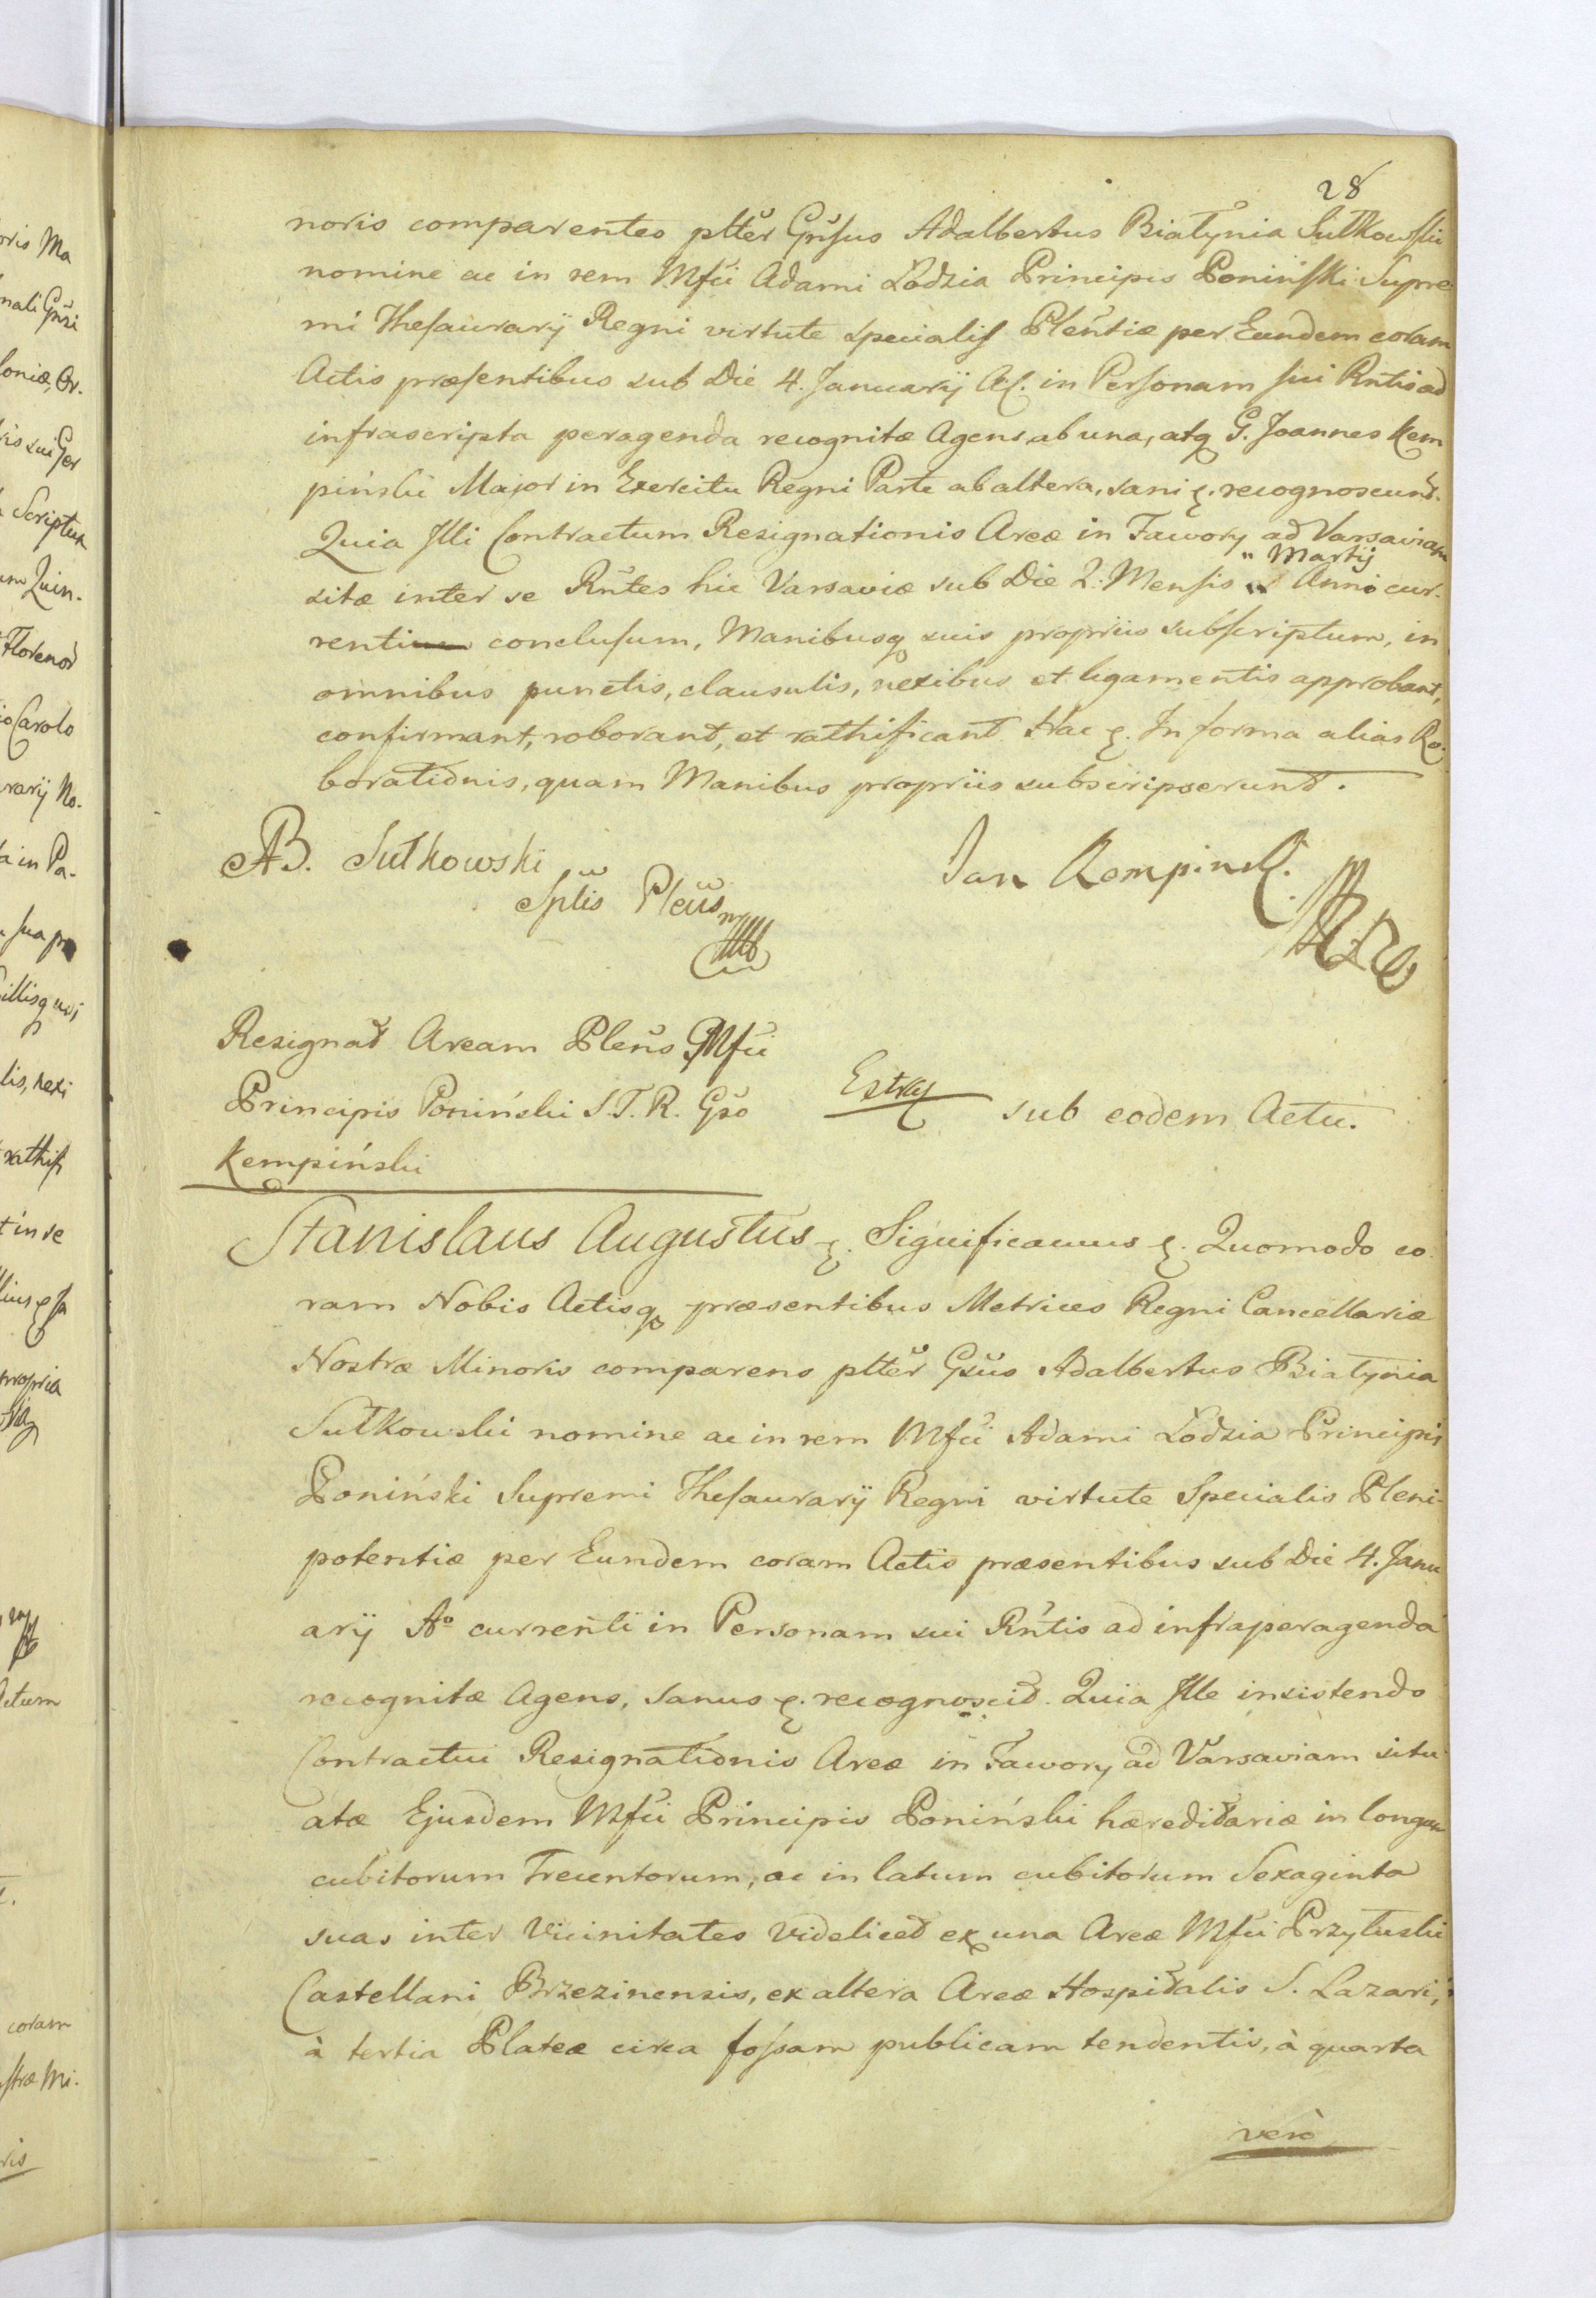 28
noris comparentes plttĕr Gnŭsus Adalbertus Białynia Sułkowski
nomine ac in rem Mfŭi Adami Łodzia Principis Poninſki Supre
mi Theſaurarÿ Regni virtute Specialiſ Pleñtiæ per Eundem coram
Actis præſentibus sub Die 4. Januarÿ Ac. in Perſonam ſui Rñtis ad
infrascripta peragenda recognitæ Agens, ab una, atq G. Joannes Kem
pinski Major in Exercitu Regni Parte ab altera, sani &. recognoscunt.
Quia Jlli Contractum Resignationis Areæ in Fawory ad Varsaviam
sitæ inter se Rñtes hic Varsaviæ sub Die 2. Menſis " Martÿ Anno cur.
renti concluſum, Manibusq suis propriis subſcriptum, in
omnibus punctis, clausulis, nexibus et ligamentis approbant,
confirmant, roborant, et rathificant. Hac &. In forma alias Ro.
borationis, quam Manibus propriis subscripserunt.
AB. Sułkowski
Splis Pleŭs mp
Jan Kempinsk.
Resignat Aream Pleñs Mfŭi
Principis Poniński S.T.R. Gso
Kempiński
Extrax
sub eodem Actu.
Stanislaus Augustus &. Significamus &. Quomodo co.
ram Nobis Actisq præsentibus Metrices Regni Cancellariæ
Nostræ Minoris comparens plttĕr Gsŭs Adalbertus Białynia
Sułkowski nomine ac in rem Mfŭi Adami Łodzia Principis
Poniński Supremi Theſaurarÿ Regni virtute Specialis Pleni-
potentiæ per Eundem coram Actis præsentibus sub Die 4. Janu
arÿ Aº currenti in Personam sui Rñtis ad infraperagenda
recognitæ Agens, sanus &. recognoscit. Quia Jlle insistendo
Contractui Resignationis Areæ in Fawory ad Varsaviam situ
atæ Ejusdem Mfŭi Principis Poniński hæreditariæ in longum
cubitorum Trecentorum, ac in latum cubitorum Sexaginta
suas inter Vicinitates videlicet ex una Areæ Mfŭi Przyłuski
Castellani Brzezinensis, ex altera Areæ Hospitalis S. Lazari,
à tertia Plateæ circa foſsam publicam tendentis, à quarta
verò